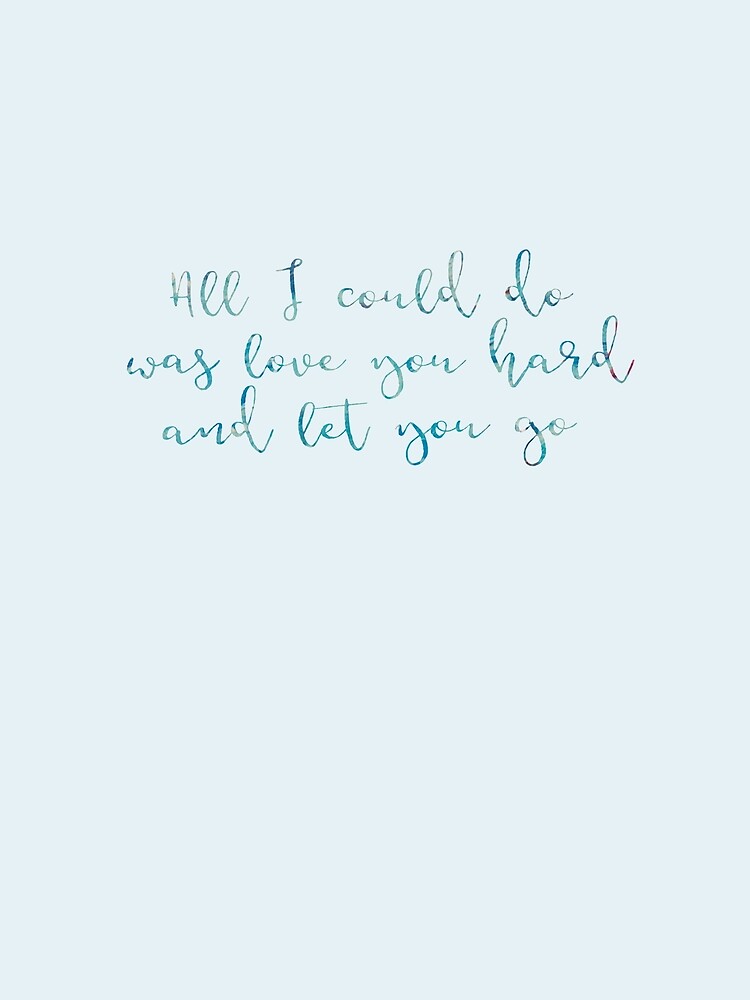 All I could do
was love you hard
and let you go